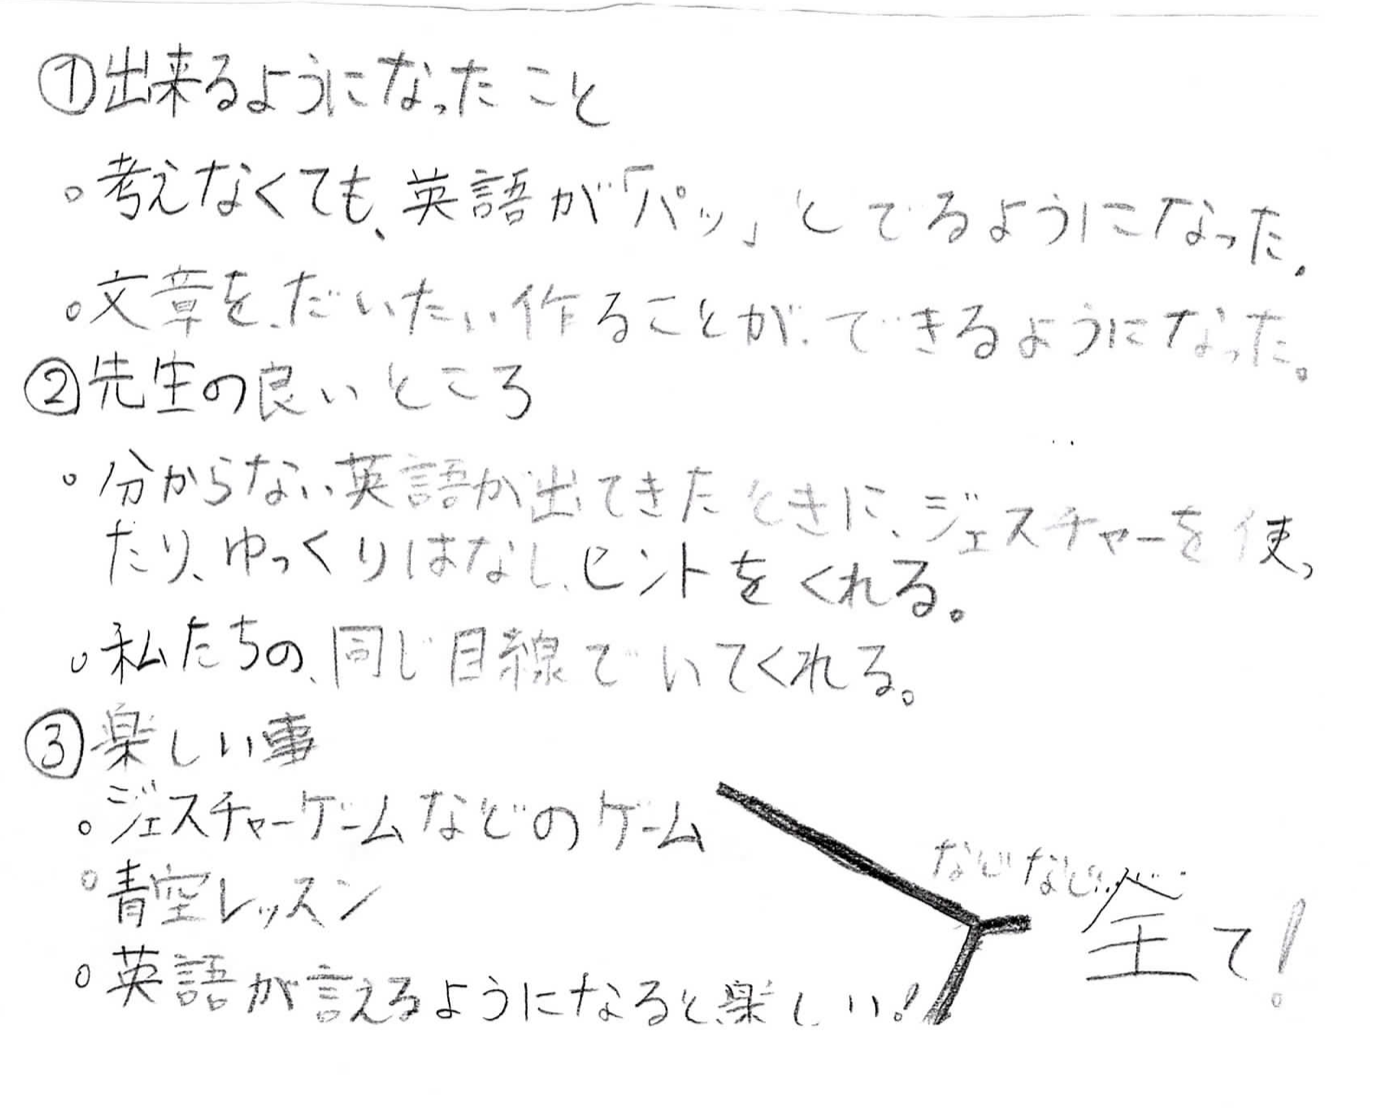 ①出来るようになったこと
。考えなくても、英語が「パッ」とでるようになった.
。文章を、だいたい作ることが、できるようになった。
②先生の良いところ
。分からない英語が出てきたときに、ジェスチャーを使っ
たり、ゆっくりはなし、ヒントをくれる。
。私たちの、同じ目線でいてくれる。
③楽しい事
。ジェスチャーゲームなどのゲーム
。青空レッスン
。英語が言えるようになると楽しい!
などなど.....
全て!